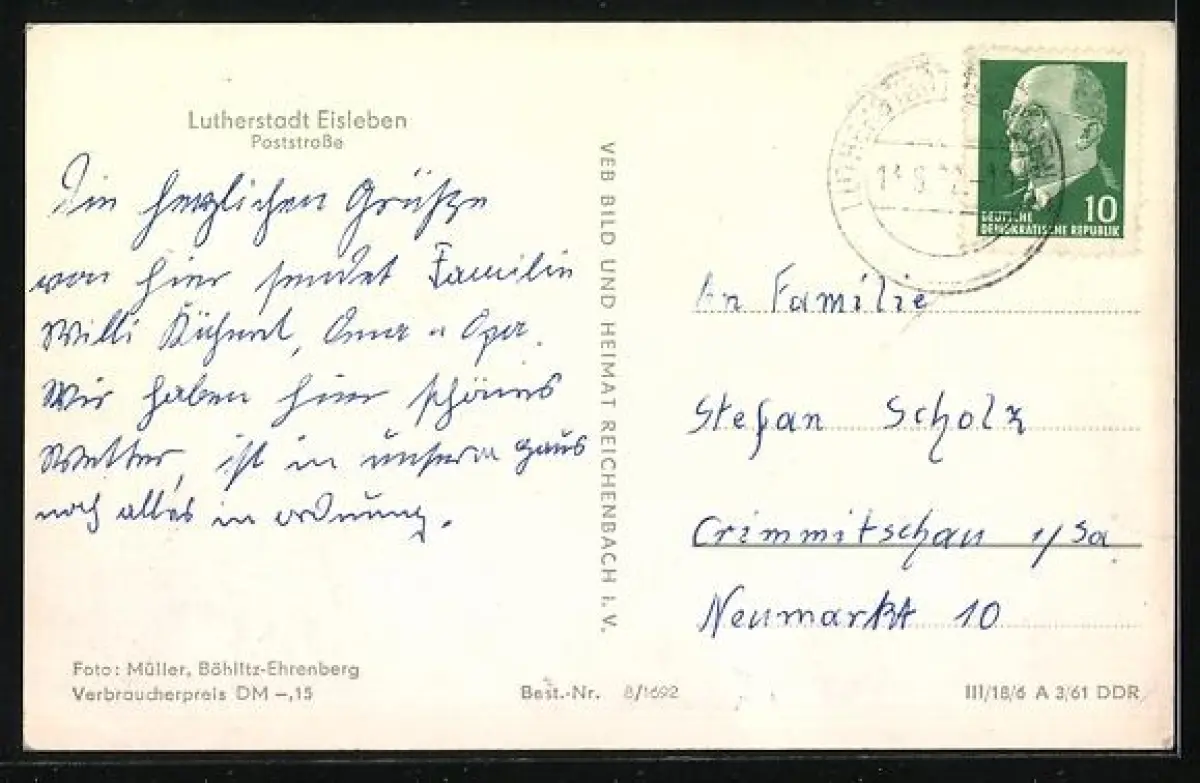 Lutherstadt Eisleben
Poststraße
Die herzlichen Grüße
von hier sendet Familie
Willi, Oma u Opa.
Wir haben hier schönes
Wetter, ist in unserm Haus
noch alles in ordnung.
VEB BILD UND HEIMAT REICHENBACH I. V.
Foto: Müller, Böhlitz-Ehrenberg
Verbraucherpreis DM –,15
Best.-Nr. 8/1692
DEUTSCHE 10
DEMOKRATISCHE REPUBLIK
An Familie
Stefan Scholz
Crimmitschau i/Sa.
Neumarkt 10
III/18/6 A 3/61 DDR